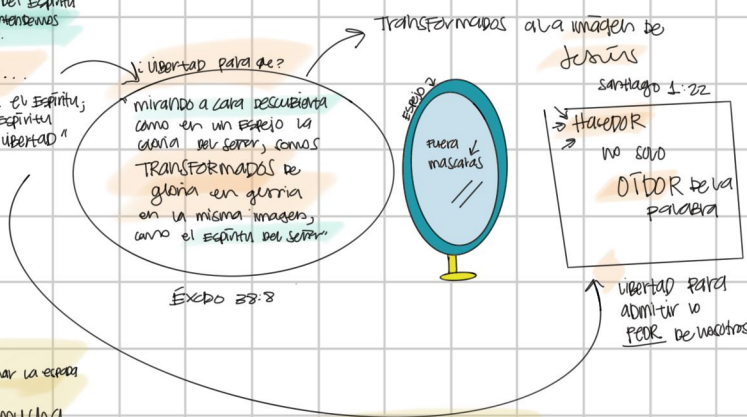 del Espíritu
entendemos
...
el Espíritu;
Espíritu
libertad"
¿libertad para qe?
mirando a cara descubierta
como en un espejo la
gloria del señor, somos
TRANSFORMADOS de
gloria en gloria
en la misma imagen,
como el Espíritu del señor"
Éxodo 38:8
TRANSFORMADOS a la imágen de
Jesús
ESPEJO
Fuera
mascaras
Santiago 1:22
HaceDOR
no solo
OIDOR de la
palabra
libertad para
admitir lo
PEOR de nosotros
la espada
mucha